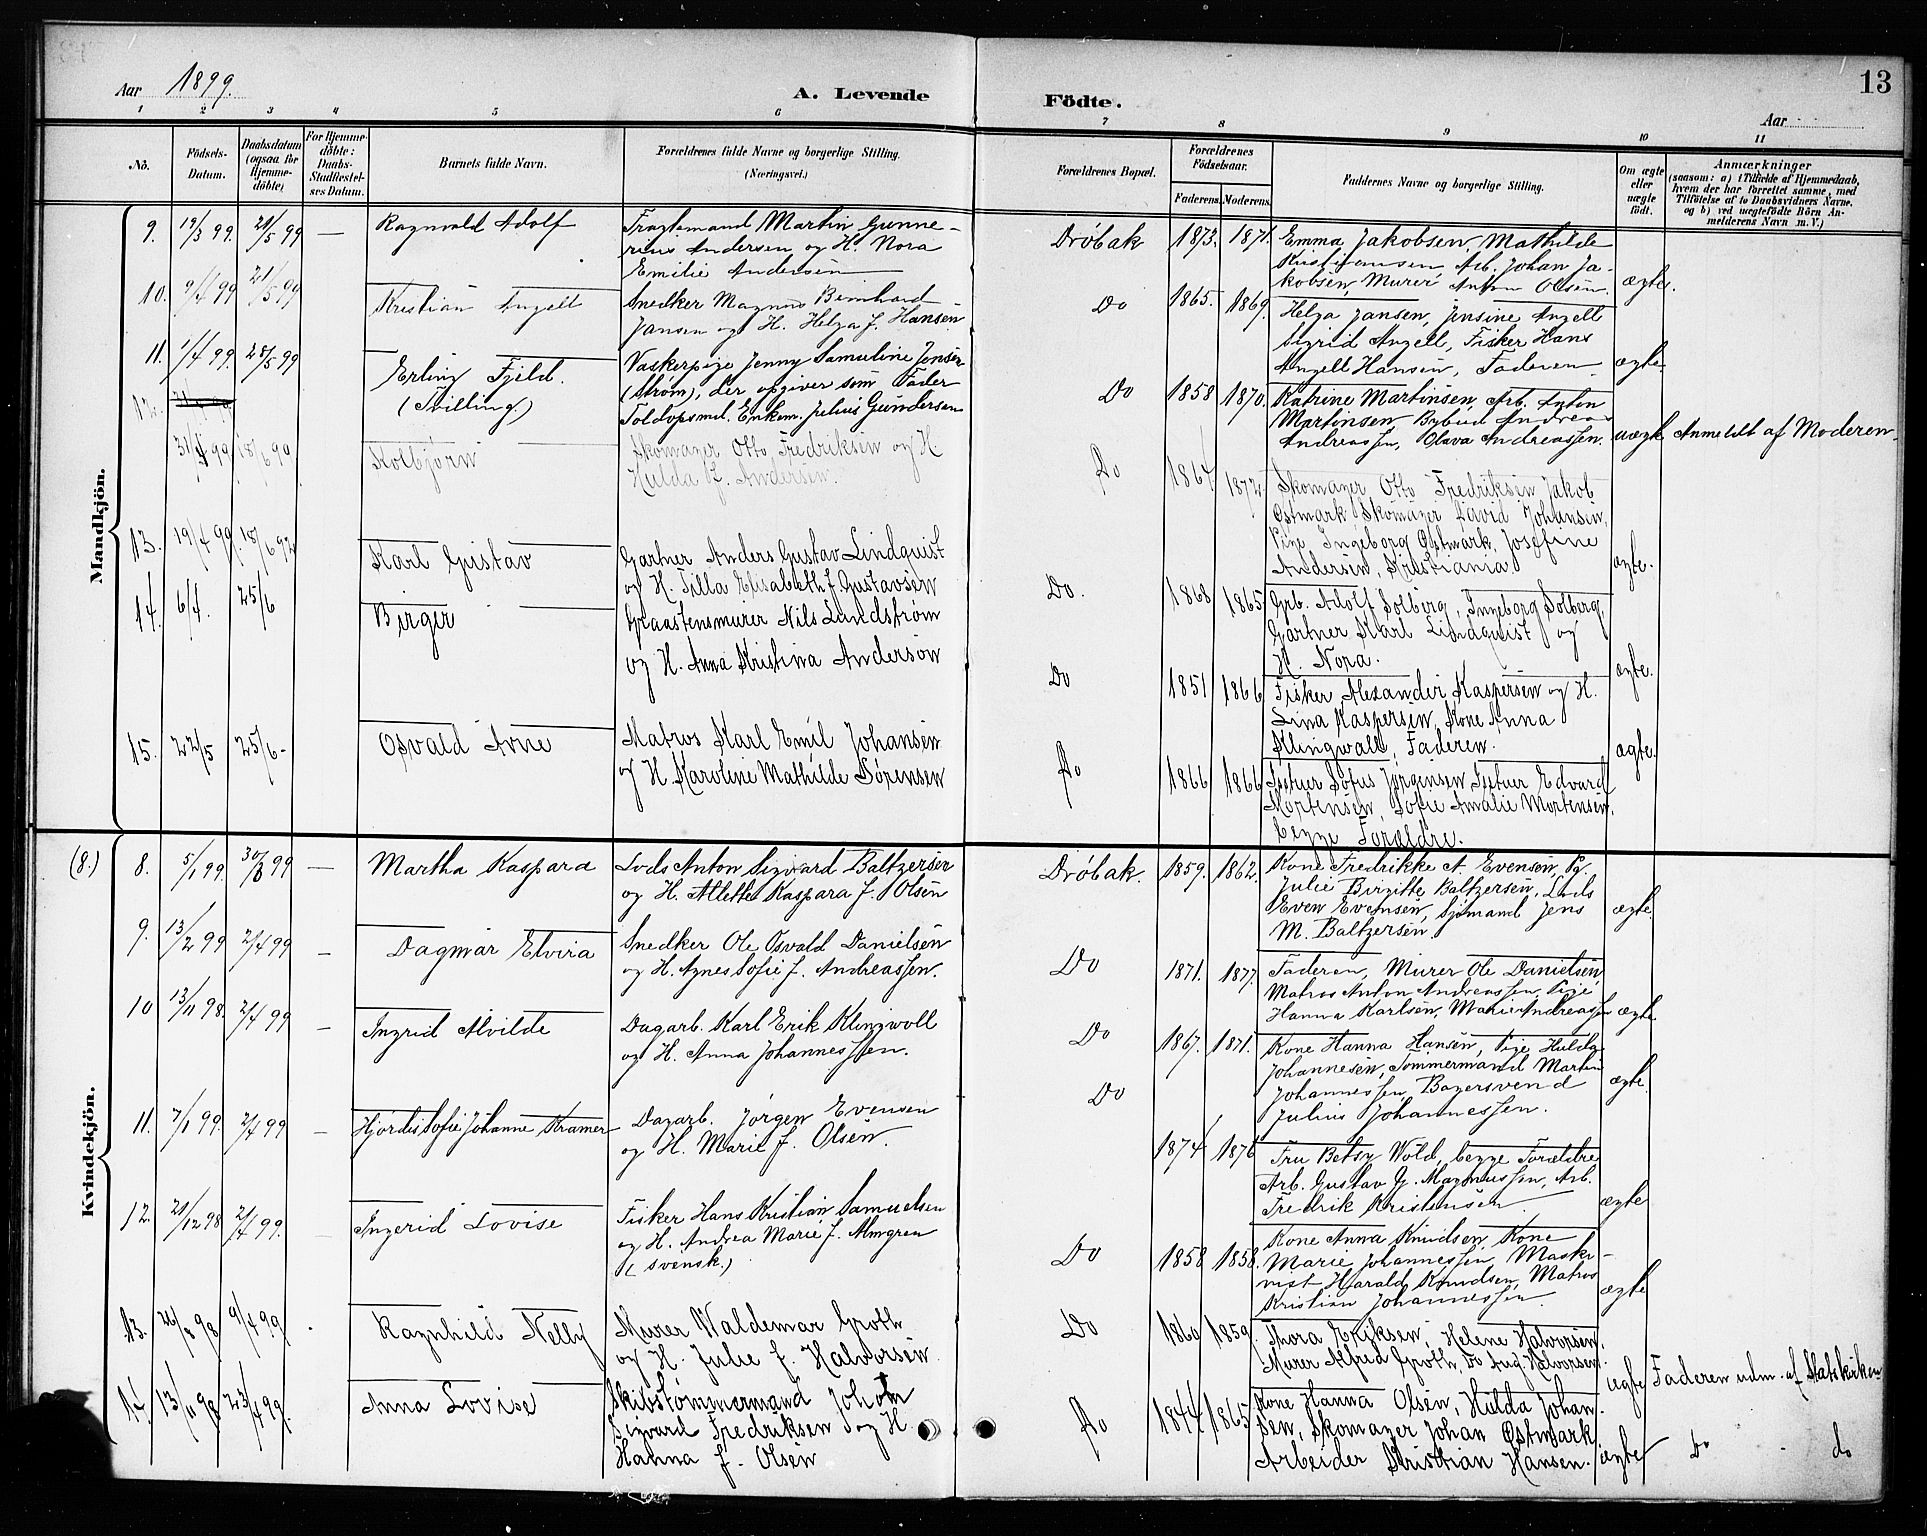 13
Aar 1899.
A. Levende Födte.
Aar
1 2 3 4 5 6 7 8 9 10 11
No.
Födsels-Datum.
Daabsdatum (ogsaa for Hjemme-döbte)
For Hjemme-döbte: Daabs-Stadfæstelses Datum.
Barnets fulde Navn.
Forældrenes fulde Navne og borgerlige Stilling.
(Næringsvei.)
Forældrenes Bopæl.
Forældrenes Födselsaar.
Faderens. Moderens.
Faddernes Navne og borgerlig Stilling.
Om ægte eller uægte födt.
Anmærkninger
(saasom: a) i Tilfælde af Hjemmedaab, hvem der har forrettet samme, med Tilföielse af to Daabsvidners Navne, og b) ved uægtefödte Börn Anmelderens Navn m. V.)
Mandkjön.
9. 19/3 99. 21/5 99 — Ragnvald Adolf
Fragtemand Martin Gunne-
rius Andersen og H. Nora
Emilie Andersen
Drøbak 1873. 1871.
Emma Jakobsen, Mathilde
Kristiansen Arb. Johan Ja-
kobsen, Murer Anton Olsen.
ægte.
10. 9/4 99 21/5 99 Kristian Angell
Snedker Magnus Bernhard
Jansen og H. Helga f. Hansen
Do 1865. 1869.
Helga Jansen, Jensine Angell
Sigrid Angell, Fisker Hans
Angell Hansen, Faderen
ægte
11. 1/4 99. 28/5 99 Erling Fjeld.
(Tvilling)
Vaskerpige Jenny Samuline Jensen
(Strøm), der opgiver som Fader
Toldopsmd. Enkem. Julius Gundersen
Do 1858 1870.
Katrine Martinsen, Arb. Anton
Martinsen, Bybud Andreas
Andreassen, Olava Andreassen.
uægte Anmeldt af Moderen.
12. 18/6 99 Kolbjørn
Skomager Otto Fredriksen og H
Hulda f. Andersen.
Do 1864. 1872.
Skomager Otto Fredriksen, Jakob
Østmark Skomager David Johansen,
Pige Ingeborg Østmark, Josefine
Andersen, Kristiania
ægte.
13. 19/4 99. 18/6 92 Karl Gustav
Gartner Anders Gustav Lindquist
og H. Tilla Elisabeth f. Gustavsen
Do. 1868 1865
Arb. Adolf Solberg, Ingeborg Solberg,
Gartner Karl Lindquist og
H. Nora.
ægte.
14. 6/4. 25/6 Birger
Graastensmurer Nils Lundstrøm
og H. Anna Kristina Anderson
Do 1851 1866
Fisker Alexander Kaspersen og H.
Lina Kaspersen, Kone Anna
Klingwall, Faderen.
ægte.
15. 22/5 25/6 - Osvald Arne
Matros Karl Emil Johansen
og H. Karoline Mathilde Sørensen
Do 1866 1866
Sofus Jørgensen Edvard
Mortensen, Sofie Amalie Mortensen,
begge Forældre.
Kvindekjön.
(8.) 8. 5/1 99. 99 — Martha Kaspara
Lods Anton Sigvard Baltzersen
og H. Alette Kaspara f. Olsen
Drøbak. 1859. 1862.
Kone Fredrikke A. Evensen, Pg.
Julie Birgitte Baltzersen, Lods
Even Evensen, Sjømand Jens
M. Baltzersen
ægte.
9. 13/2 99 2/4 99 — Dagmar Elvira
Snedker Ole Osvald Danielsen
og H. Agnes Sofie f. Andreassen.
Do 1871. 1877.
Faderen, Murer Ole Danielsen
Matros Anton Andreassen, Pige
Hanna Karlsen, Marie Andreassen
ægte
10 13/11 98. 2/4 99 — Ingrid Alvilde
Dagarb. Karl Erik Klingwoll
og H. Anna Johannessen.
Do 1867. 1871.
Kone Hanna Hansen, Pige Hulda
Johannesen, Tømmermand Martin
Johannessen, Bagersvend
Julius Johannessen.
ægte.
11. 7/1 99. 2/4 99 — Hjørdis Sofie Johanne Kramer
Dagarb. Jørgen Evensen
og H. Marie f. Olsen.
Do 1874 1876
Fru Betsy Wold, begge Forældre
Arb. Gustav G. Magnussen, Arb.
Fredrik Kristensen
ægte
12. 21/12 98 2/4 99. Ingerid Lovise
Fisker Hans Kristian Samuelsen
og H. Andrea Marie f. Almgren
(svensk.)
Do 1858 1858.
Kone Anna Knudsen, Kone
Marie Johannessen, Maski-
nist Harald Knudsen, Matros
Kristian Johannessen.
ægte
13. 26/8 98 9/4 99 Ragnhild Nelly
Murer Waldemar Groth
og H. Julie f. Halvorsen.
Do 1860 1859.
Thora Eriksen, Helene Halvorsen,
Murer Alfred Groth, Do Aug. Halvorsen.
ægte Faderen udm. af Statskirken
14. 13/11 98 23/4 99. Anna Lovise
Skibstømmermand Johan
Sigvard Fredriksen og H.
Hanna f. Olsen
Do 1844 1865
Kone Hanna Olsen, Hulda Johan
sen, Skomager Johan Østmark
Arbeider Kristian Hansen.
ægte Do do